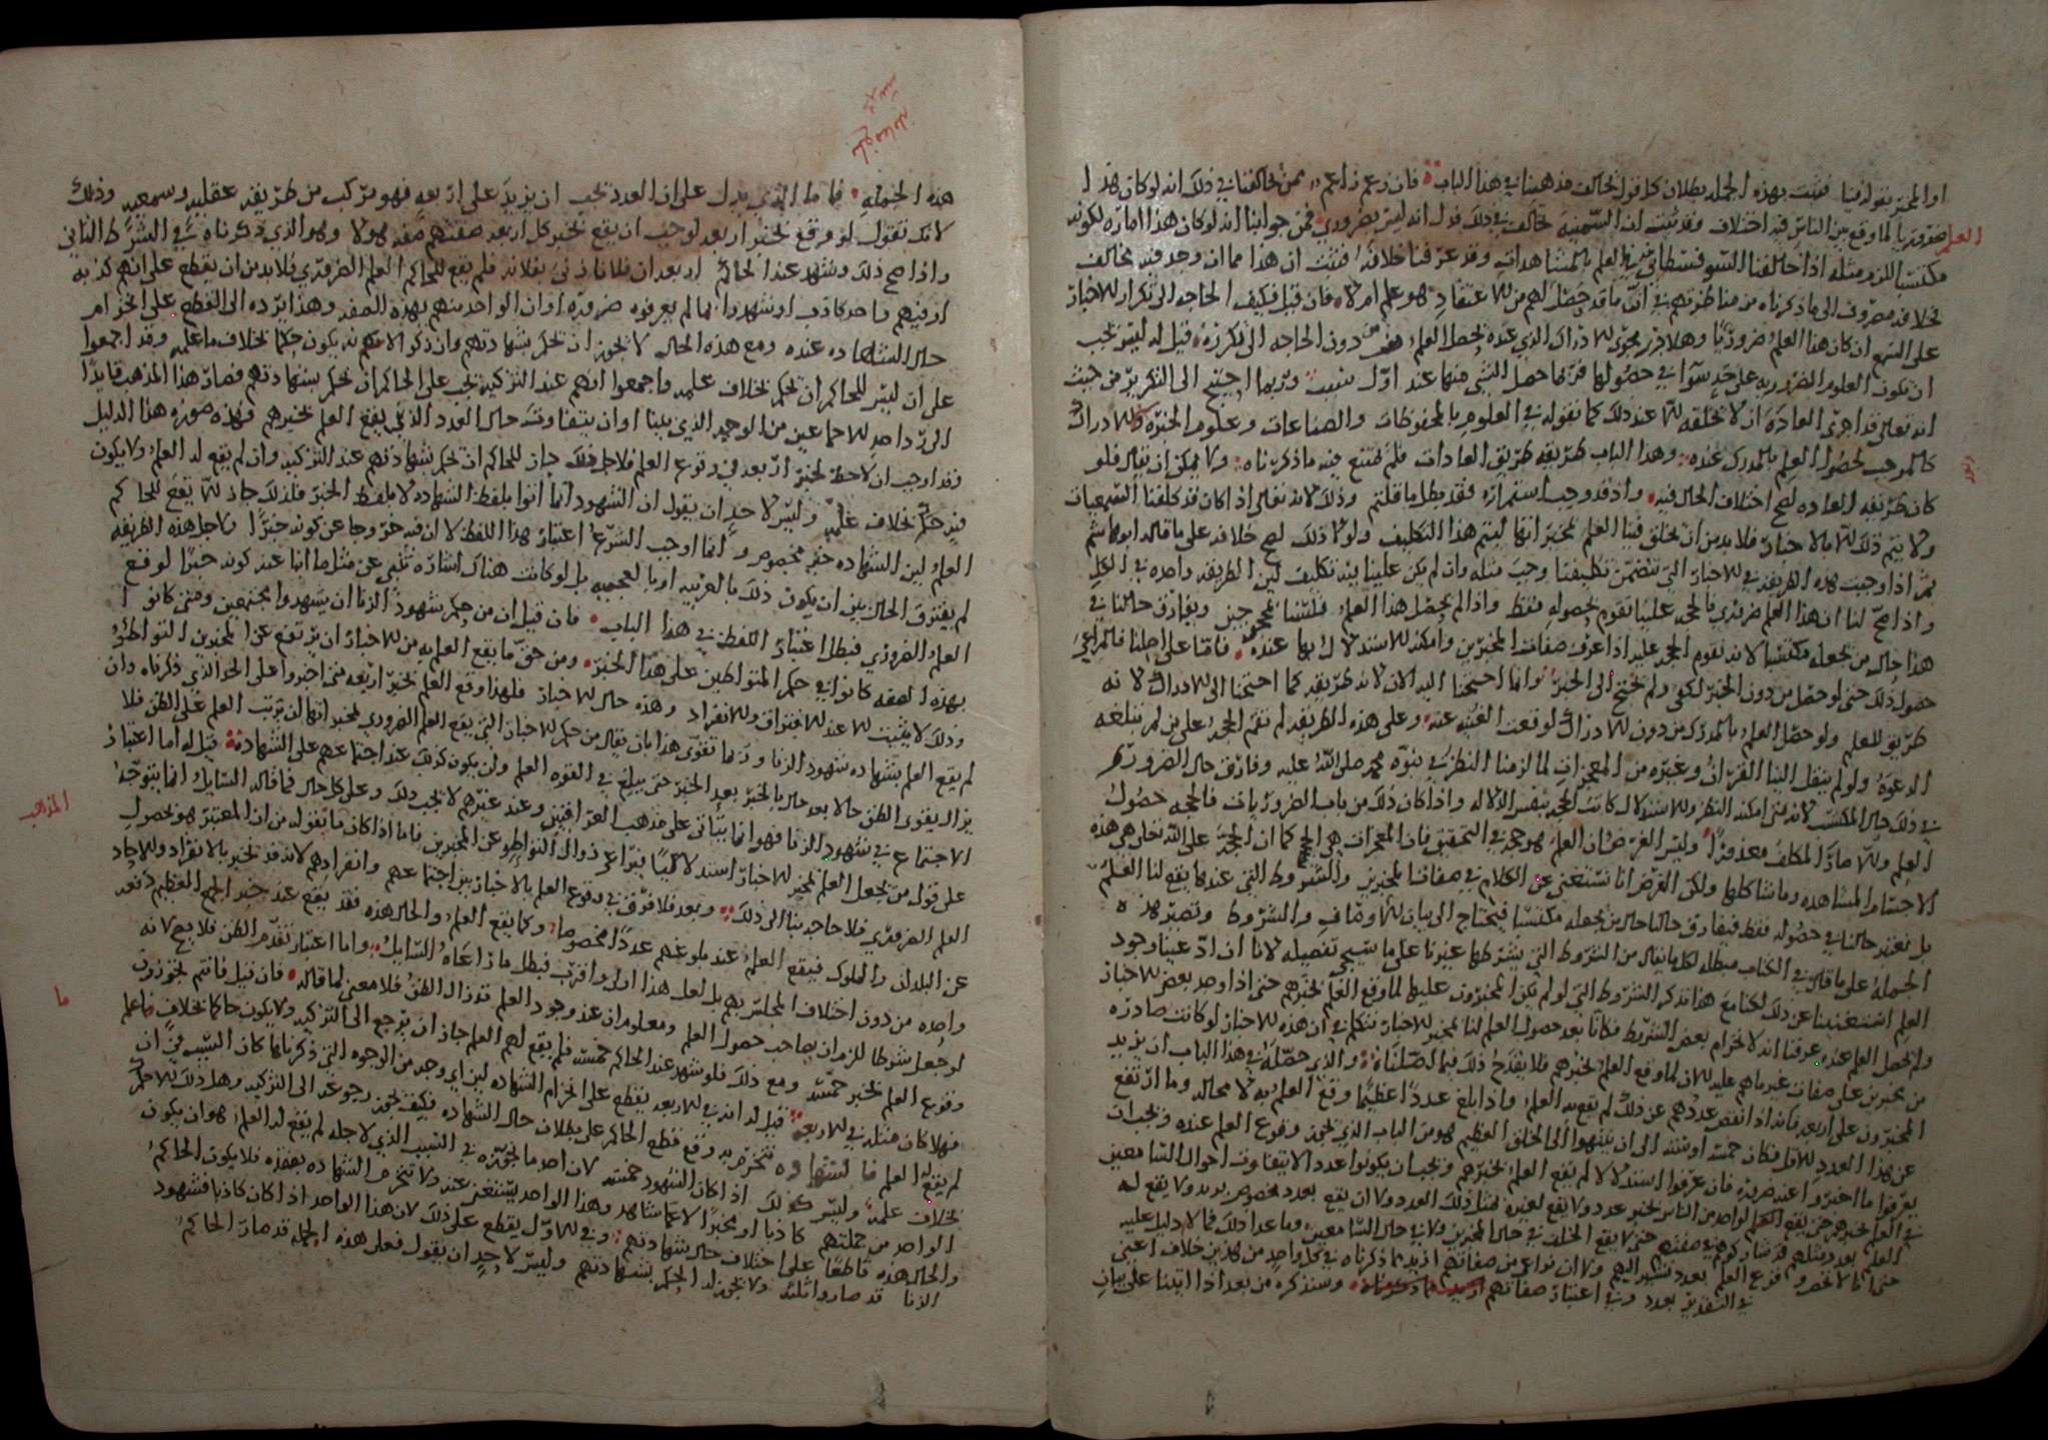 او المخبر بقوله فينا فثبت بهذه الجمله بطلان كل قول يخالف مذهبنا في هذا الباب فان زعم زاعم ممن خالفنا في ذلك انه لو كان هذا
العلم ضروريا لما وقع بين الناس فيه اختلاف وقد ثبت ان السمنية تخالف في ذلك قول انه ليس بضروري فمن جوابنا انه لو كان هذا امارة لكونه
مكتسبا للزم مثله اذا خالفنا السوفسطائي في العلم بالمشاهدات وقد عرفنا خلافه فثبت ان هذا مما ان وجد فيه مخالف
فخلافه مصروف الى ما ذكرناه من مناظرتهم في ان ما قد حصل لهم من الاعتقاد هو علم ام لا فان قيل فكيف الحاجه الى تكرار الاخبار
على السمع ان كان هذا العلم ضروريا وهلا جرى مجرى الادراك الذي عنده يحصل العلم من دون الحاجه الى تكرره قيل له ليس يجب
ان تكون العلوم الضروريه على حد سوآ في حصولها فربما حصل الشي منها عند اول سبب وربما احتيج الى التكرير من حيث
انه تعالى قد اجرى العادة ان لا يخلقه الا عند ذلك كما نقوله في العلوم بالمحفوظات والصناعات وعلوم الخبرة والادراك
كالموجب لحصول العلم بالمدرك عنده وهذا الباب طريقه طريق العادات فلم يمتنع فيه ما ذكرناه ولا يمكن ان يقال فلو
كان طريقه العاده لصح اختلاف الحال فيه واذ قد وجب استمراره فقد بطل ما قلتم وذلك لانه تعالى اذا كان قد كلفنا السمعيات
ولا يتم ذلك الا بالاخبار فلا بد من ان يخلق فينا العلم بمخبراتها ليتم هذا التكليف ولولا ذلك لصح خلافه على ما قاله ابو هاشم
ثم اذا وجبت هذه الطريقه في الاخبار التي تتضمن تكليفنا وجب مثله وان لم يكن علينا فيه تكليف لان الطريقه واحده في الكل
واذا صح لنا ان هذا العلم ضروري فالحجه علينا تقوم بحصوله فقط واذا لم يحصل هذا العلم فلسنا بمحجوجين ويفارق حالنا في
هذا حال من يجعله مكتسبا لانه تقوم الحجه عليه اذا عرف صفات المخبرين وامكنه الاستدلال بها عنده فاما على اصلنا فالمراعى
حصول ذلك حتى لو حصل من دون الخبر لكفى ولم يحتج الى الخبر وانما احتجنا اليه الان لانه طريقه كما احتجنا الى الادراك لانه
طريق للعلم ولو حصل العلم بالمدرك من دون الادراك لوقعت الغنيه عنه وعلى هذه الطريقه لم تقم الحجه على من لم تبلغه
الدعوة ولو لم ينقل الينا القرآن وغيره من المعجزات لما لزمنا النظر في نبوة محمد صلى الله عليه وفارق حال الضروري
في ذلك حال المكتسب لانه متى امكنه النظر والاستدلال كانت الحجه بنفس الدلاله واذا كان ذلك من باب الضروريات فالحجه حصول
العلم والا صار المكلف معذورا وليس الغرض ان العلم هو حجة في التحقيق فان المعجزات هي الحجج كما ان الحجة على الله تعالى هي هذه
الاجسام المشاهده وما شاكلها ولكن الغرض انا نستغني عن الكلام في صفات المخبرين والشروط التي عندها يقع لنا العلم
بل نعتبر حالنا في حصوله فقط فيفارق حالنا حال من يجعله مكتسبا فيحتاج الى بيان الاوصاف والشروط وتصير هذه
الجملة على ما قال في الكتاب مبطله لكل ما يقال من الشروط التي يشترطها غيرنا على ما سيجي تفصيله لانا ان ادعينا وجود
العلم استغنينا عن ذلك لكنا مع هذا نذكر الشروط التي لو لم يكن المخبرون عليها لما وقع العلم بخبرهم حتى اذا وجد بعض الاخبار
ولم يحصل العلم عنده عرفنا انه لانخرام بعض الشرائط فكانا بعد حصول العلم لنا بمخبر الاخبار نتكلم في ان هذه الاخبار لو كانت صادره
من مخبرين على صفات غير ما هم عليه الان لما وقع العلم بخبرهم فلا يقدح ذلك فيما اصلناه والذي حصله في هذا الباب ان يزيد
المخبرون على اربعه فكانه اذا نقص عددهم عن ذلك لم يقع به العلم واذا بلغ عددا عظيما وقع العلم به لا محاله وما ارتفع
عن هذا العدد الاقل فكان خمسة او ستة الى ان ينتهوا الى الخلق العظيم فهو من الباب الذي يجوز وقوع العلم عنده ويجب ان
يعرفوا ما اخبروا عنه ضرورة فان عرفوا استدلالا لم يقع العلم بخبرهم ويجب ان يكونوا عددا لا يتفاوت احوال السامعين
في العلم بخبرهم حتى يقع العلم لواحد من الناس بخبر عدد ولا يقع لغيره بمثل ذلك العدد ولا ان يقع بعدد مخصوص بريد ولا يقع له
العلم بعدد مثلهم قد شاركوهم في صفتهم حتى لا يقع الخلف في حال المخبرين ولا في حال السامعين وما عدا ذلك فمما لا دليل عليه
حتى انا لا نحصر وقوع العلم بعدد نشير اليهم ولا ان نراعي من صفاتهم ازيد مما ذكرناه في كل واحد من هذين خلاف اعني
في التقدير بعدد وفي اعتبار صفاتهم وسنذكره من بعد اذا اتينا على بيان
هذه الجملة فاما الذي يدل على ان العدد يجب ان يزيد على اربعه فهو مركب من طريقه عقليه وسمعيه وذلك
لانك تقول لو وقع بخبر اربعه لوجب ان يقع بخبر كل اربعه صفتهم صفه هولا وهو الذي ذكرناه في الشرط الثاني
واذا صح ذلك وشهد عند الحاكم اربعه ان فلانا زنى بفلانه فلم يقع للحاكم العلم الضروري فلا بد من ان يقطع على انهم كذبه
او فيهم واحد كاذب او شهدوا بما لم يعرفوه ضرورة او ان الواحد منهم بهذه الصفه وهذا يرده الى القطع على انخرام
حال الشهاده عنده ومع هذه الحاله لا يجوز ان يحكم بشهادتهم وان ذكر الاعتبار به يكون حكما بخلاف ما علمه وقد اجمعوا
على ان ليس للحاكم ان يحكم بخلاف علمه واجمعوا انهم عند التزكيه يجب على الحاكم ان يحكم بشهادتهم فصار هذا المذهب قايدا
الى رد احد الاجماعين من الوجه الذي بينا او ان يتفاوت حال العدد الذي يقع العلم بخبرهم فهذه صورة هذا الدليل
وقد اوجب ان لاحظ لخبر اربعه في وقوع العلم فلاجل ذلك جاز للحاكم ان يحكم بشهادتهم عند التزكيه وان لم يقع له العلم ولا يكون
فيه حكم بخلاف علمه وليس لاحد ان يقول ان الشهود انما اتوا بلفظ الشهاده لا بلفظ الخبر فلذلك جاز الا يقع للحاكم
العلم لان الشهاده خبر مخصوص وانما اوجب الشرع اعتبار هذا اللفظ لا ان فيه خروجا عن كونه خبرا ولاجل هذه الطريقه
لم يفترق الحال بين ان يكون ذلك بالعربيه او بالعجميه بل لو كانت هناك اشارة تنبي عن مثل ما انبا عنه كونه خبرا لوقع
العلم الضروري فبطل اعتبار اللفظ في هذا الباب فان قيل ان من حكم شهود الزنا ان يشهدوا مجتمعين ومتى كانوا
بهذه الصفه كانوا في حكم المتواطين على هذا الخبر ومن حق ما يقع العلم به من الاخبار ان يرتفع عن المخبرين التواطؤ
وذلك لا يثبت الا عند الافتراق والانفراد وهذه حال الاخبار فلهذا وقع العلم بخبر اربعه متى اخبروا على الحد الذي ذكرناه وان
لم يقع العلم بشهاده شهود الزنا وربما تقوى هذا بان يقال من حكم الاخبار التي يقع العلم الضروري بمخبراتها ان يترتب العلم على الظن فلا
يزال يقوى الظن حالا بعد حال بالخبر بعد الخبر حتى يبلغ في القوه العلم ولن يكون كذلك عند اجتماعهم على الشهادة قيل له اما اعتبار
الاجتماع في شهود الزنا فهو انما يتاتى على مذهب العراقيين وعند غيرهم لا يجب ذلك وعلى كل حال فما قاله السايل انما يتوجه
على قول من يجعل العلم بمخبر الاخبار استدلاليا فيراعي زوال التواطؤ عن المخبرين فاما اذا كان ما نقوله من ان المعتبر هو بحصول
العلم الضروري فلا حاجه بنا الى ذلك وبعد فلا فرق في وقوع العلم بالاخبار بين اجتماعهم وانفرادهم لانه قد نخبر بالانفراد والاحاد
عن البلدان والملوك فيقع العلم عند بلوغهم عددا مخصوصا وكما يقع العلم والحال هذه فقد يقع عند خبر الجمع العظيم دفعه
واحده من دون اختلاف المجلس بهم بل لعل هذا اولى واقرب فبطل ما ادعاه السايل واما اعتبار تقدم الظن فلا يصح لانه
لو جعل شرطا للزم ان يصاحب حصول العلم ومعلوم ان عند وجود العلم قد زال الظن فلا معنى لما قاله فان قيل فانتم تجوزون
وقوع العلم بخبر خمسة ومع ذلك فلو شهد عند الحاكم خمسة فلم يقع لهم العلم جاز ان يرجع الى التزكيه ولا يكون حاكما بخلاف ما علم
فهلا كان مثله في الاربعه قيل له انه في الاربعه يقطع على انخرام الشهاده لاي وجه من الوجوه التي ذكرناها كان السبب في ان
لم يقع له العلم فالشهاده تنخرم به ووقع قطع الحاكم على بطلان حال الشهاده فكيف يجوز رجوعه الى التزكيه وهل ذلك الا حكم
بخلاف علمه وليس كذلك اذا كان الشهود خمسه لان احد ما نجوزه في السبب الذي لاجله لم يقع له العلم هو ان يكون
الواحد من جملتهم كاذبا او مخبرا لا عما شاهد وهذا الواحد يستغنى عنه ولا تنخرم الشهاده بفقده فلا يكون الحاكم
والحال هذه قاطعا على اختلاف حال شهادتهم وفي الاول يقطع على ذلك لان هذا الواحد اذا كان كاذبا فشهود
الزنا قد صاروا ثلثه ولا يجوز له الحكم بشهادتهم وليس لاحد ان يقول فعلى هذه الجمله قد صار الحاكم
المذهب
ما